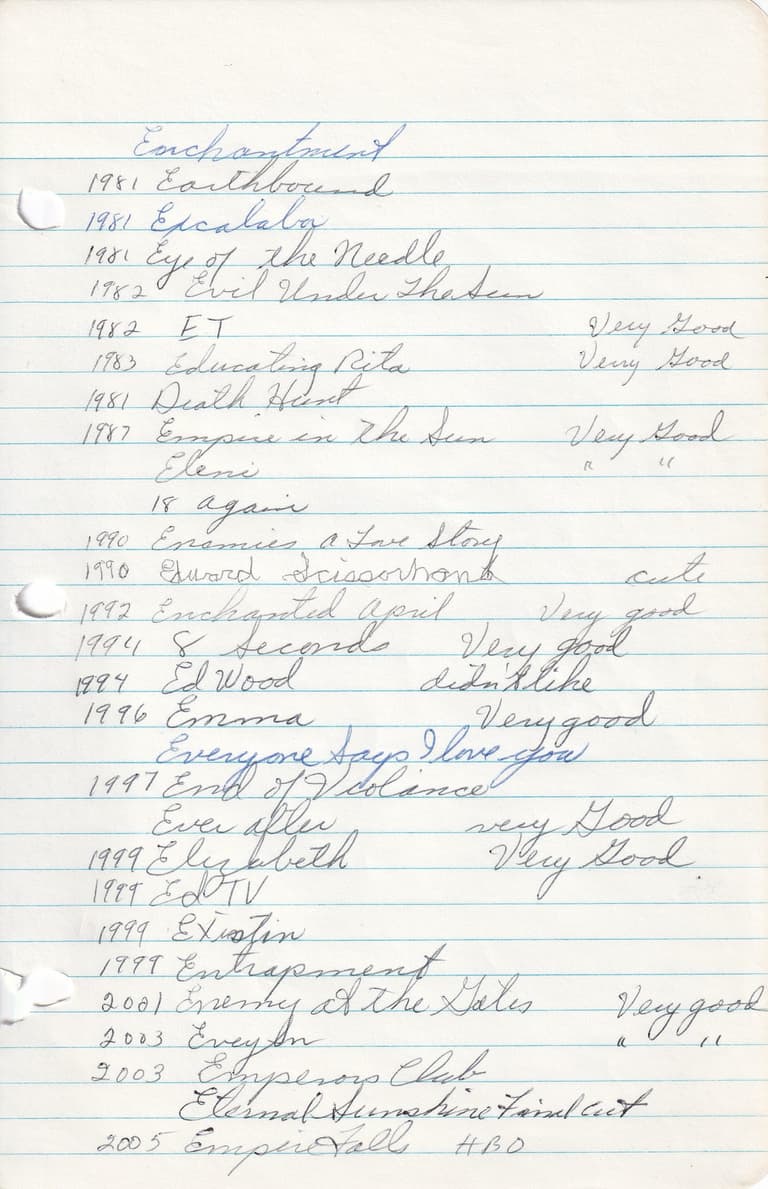 Enchantment
1981 Earthbound
1981 Excalaba
1981 Eye of the Needle
1982 Evil Under The Sun
1982 ET Very Good
1983 Educating Rita Very Good
1981 Death Hunt
1987 Empire in the Sun Very Good
Eleni " "
18 again
1990 Enemies a Love Story
1990 Edward Scissorhand cute
1992 Enchanted April Very good
1994 8 Seconds Very good
1994 Ed Wood didn't like
1996 Emma Very good
Everyone Says I love you
1997 End of Violance
Ever after very Good
1999 Elizabeth Very Good
1999 Ed TV
1999 Existin
1999 Entrapment
2001 Enemy at the Gates Very good
2003 Eveyln " "
2003 Emperors Club
Eternal Sunshine Final cut
2005 Empire Falls HBO